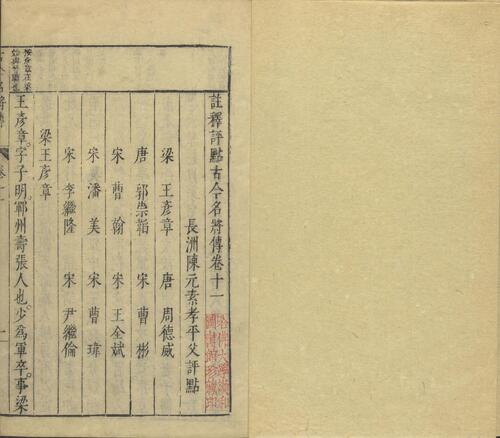 註釋評點古今名將傳卷十一
長洲陳元素孝平父評點
梁 王彥章 唐 周德威
唐 郭崇韜 宋 曹彬
宋 曹翰 宋 王全斌
宋 潘美 宋 曹瑋
宋 李繼隆 宋 尹繼倫
梁王彥章
王彥章。字子明。鄆州壽張人也。少爲軍卒。事梁